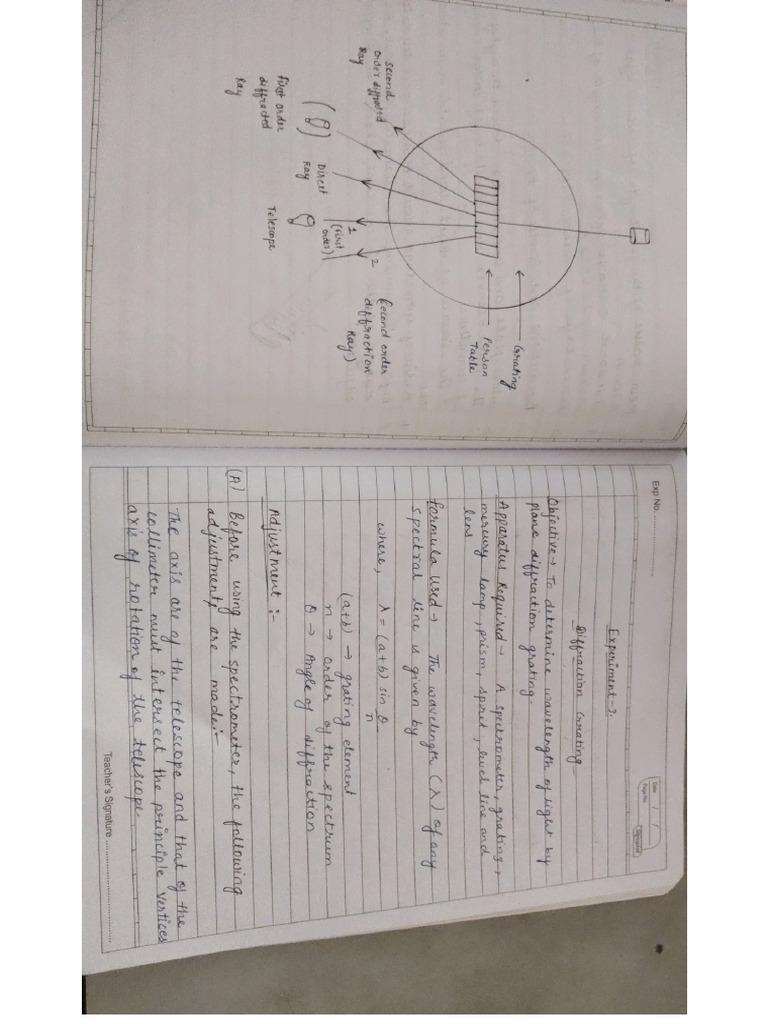 second
order diffracted
Ray
First order
diffracted
Ray
Direct
Ray
Telescope
1
(First
order)
2
(Second order
diffraction
Ray)
Grating
Person
Table
Exp No.
Date / /
Page No.
Experiment-2.
Diffraction Grating
Objective → To determine wavelength of light by
plane diffraction grating.
Apparatus Required → A spectrometer, grating,
mercury lamp, prism, spirit, level line and
lens
formula Used → The wavelength (λ) of any
spectral line is given by
where, λ = (a+b) sin θ
n
(a+b) → grating element
n → order of the spectrum
θ → Angle of diffraction
Adjustment :-
(A) Before using the spectrometer, the following
adjustments are made:-
The axis are of the telescope and that of the
collimeter must intersect the principle vertices
axis of rotation of the telescope.
Teacher's Signature